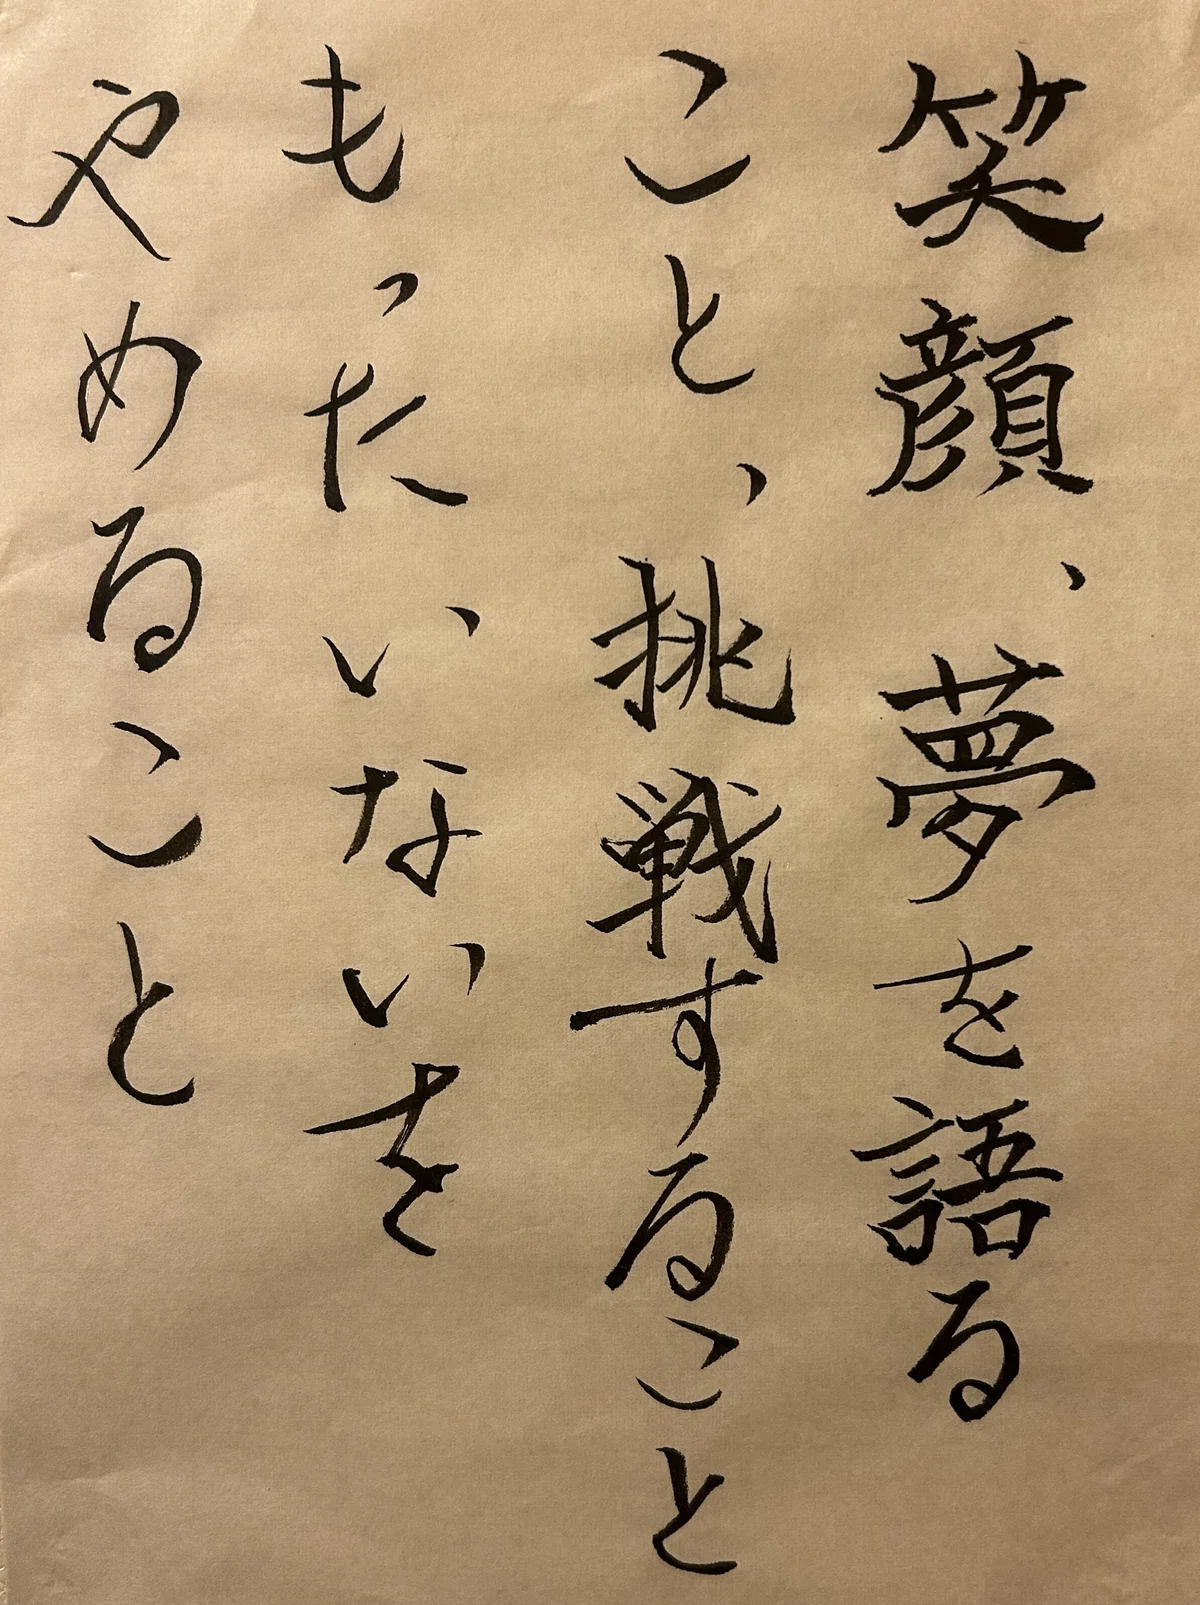 笑顔、夢を語る
こと、挑戦すること
もったいないを
やめること